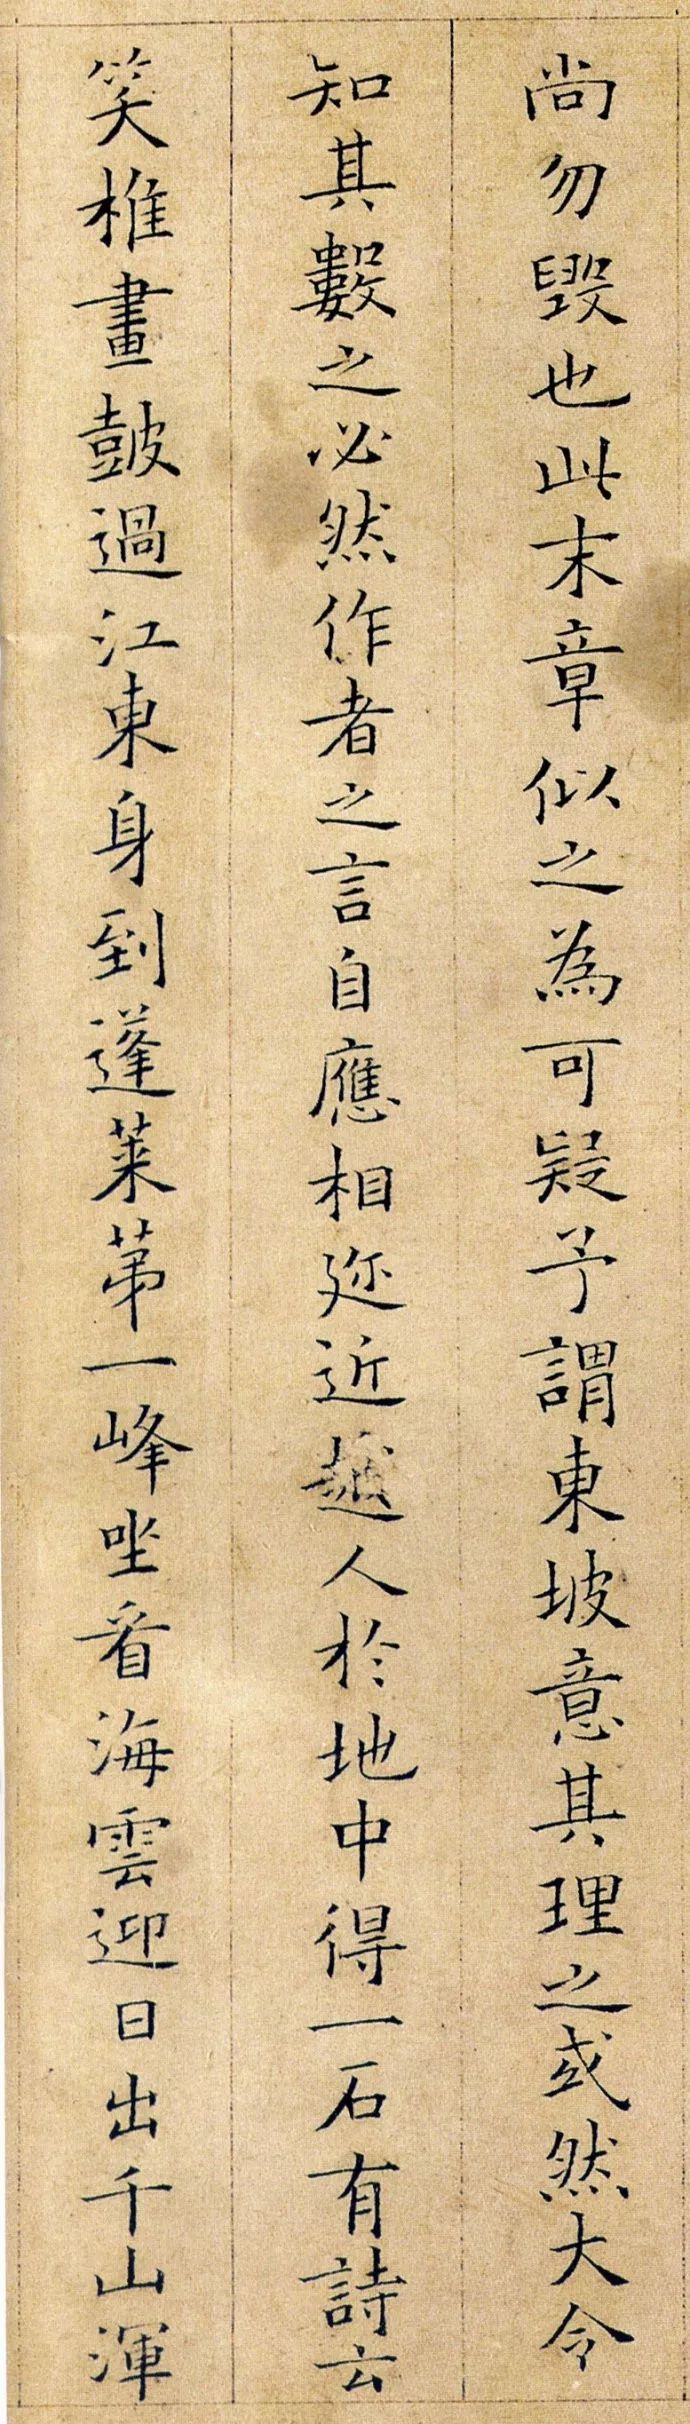 尚勿毀也此末章似之為可疑予謂東坡意其理之或然大令
知其數之必然作者之言自應相近近越人於地中得一石有詩云
笑椎畫鼓過江東身到蓬萊第一峰坐看海雲迎日出千山渾